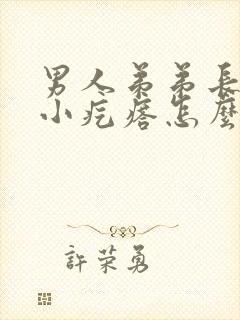 男人弟弟長
小疙瘩怎麼
許榮勇